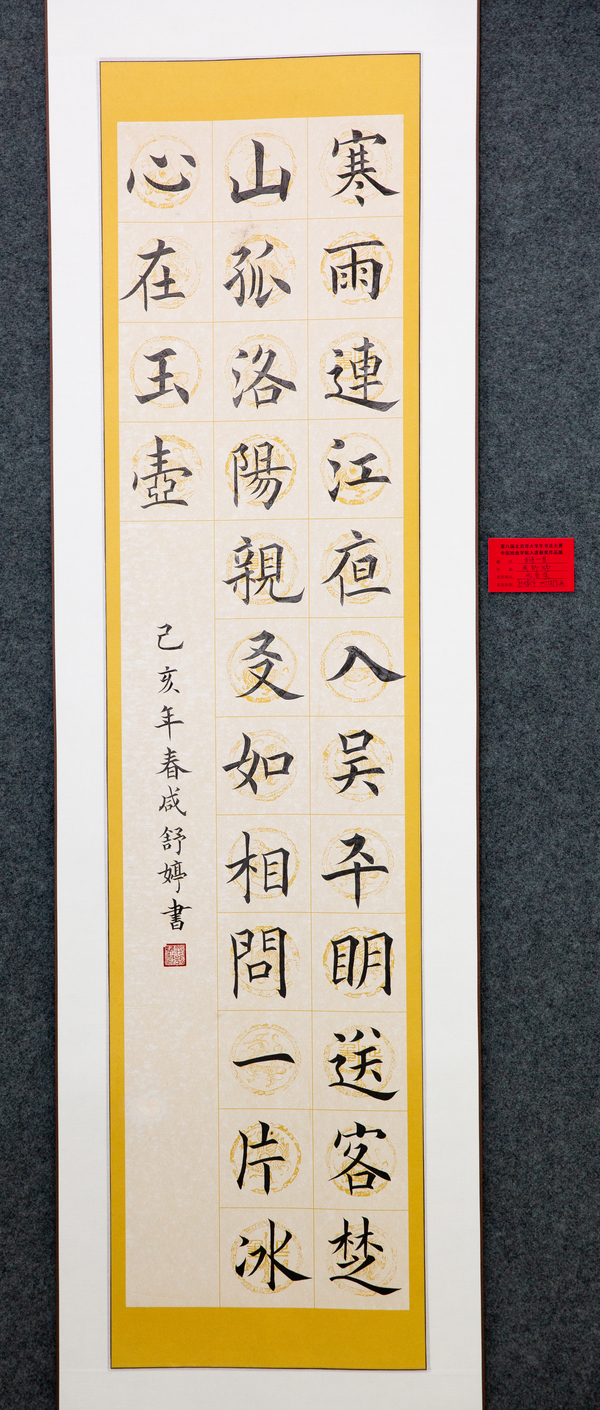 寒雨連江亱入吴平眀送客楚
山孤洛陽親友如相問一片冰
心在玉壺
己亥年春咸舒婷書